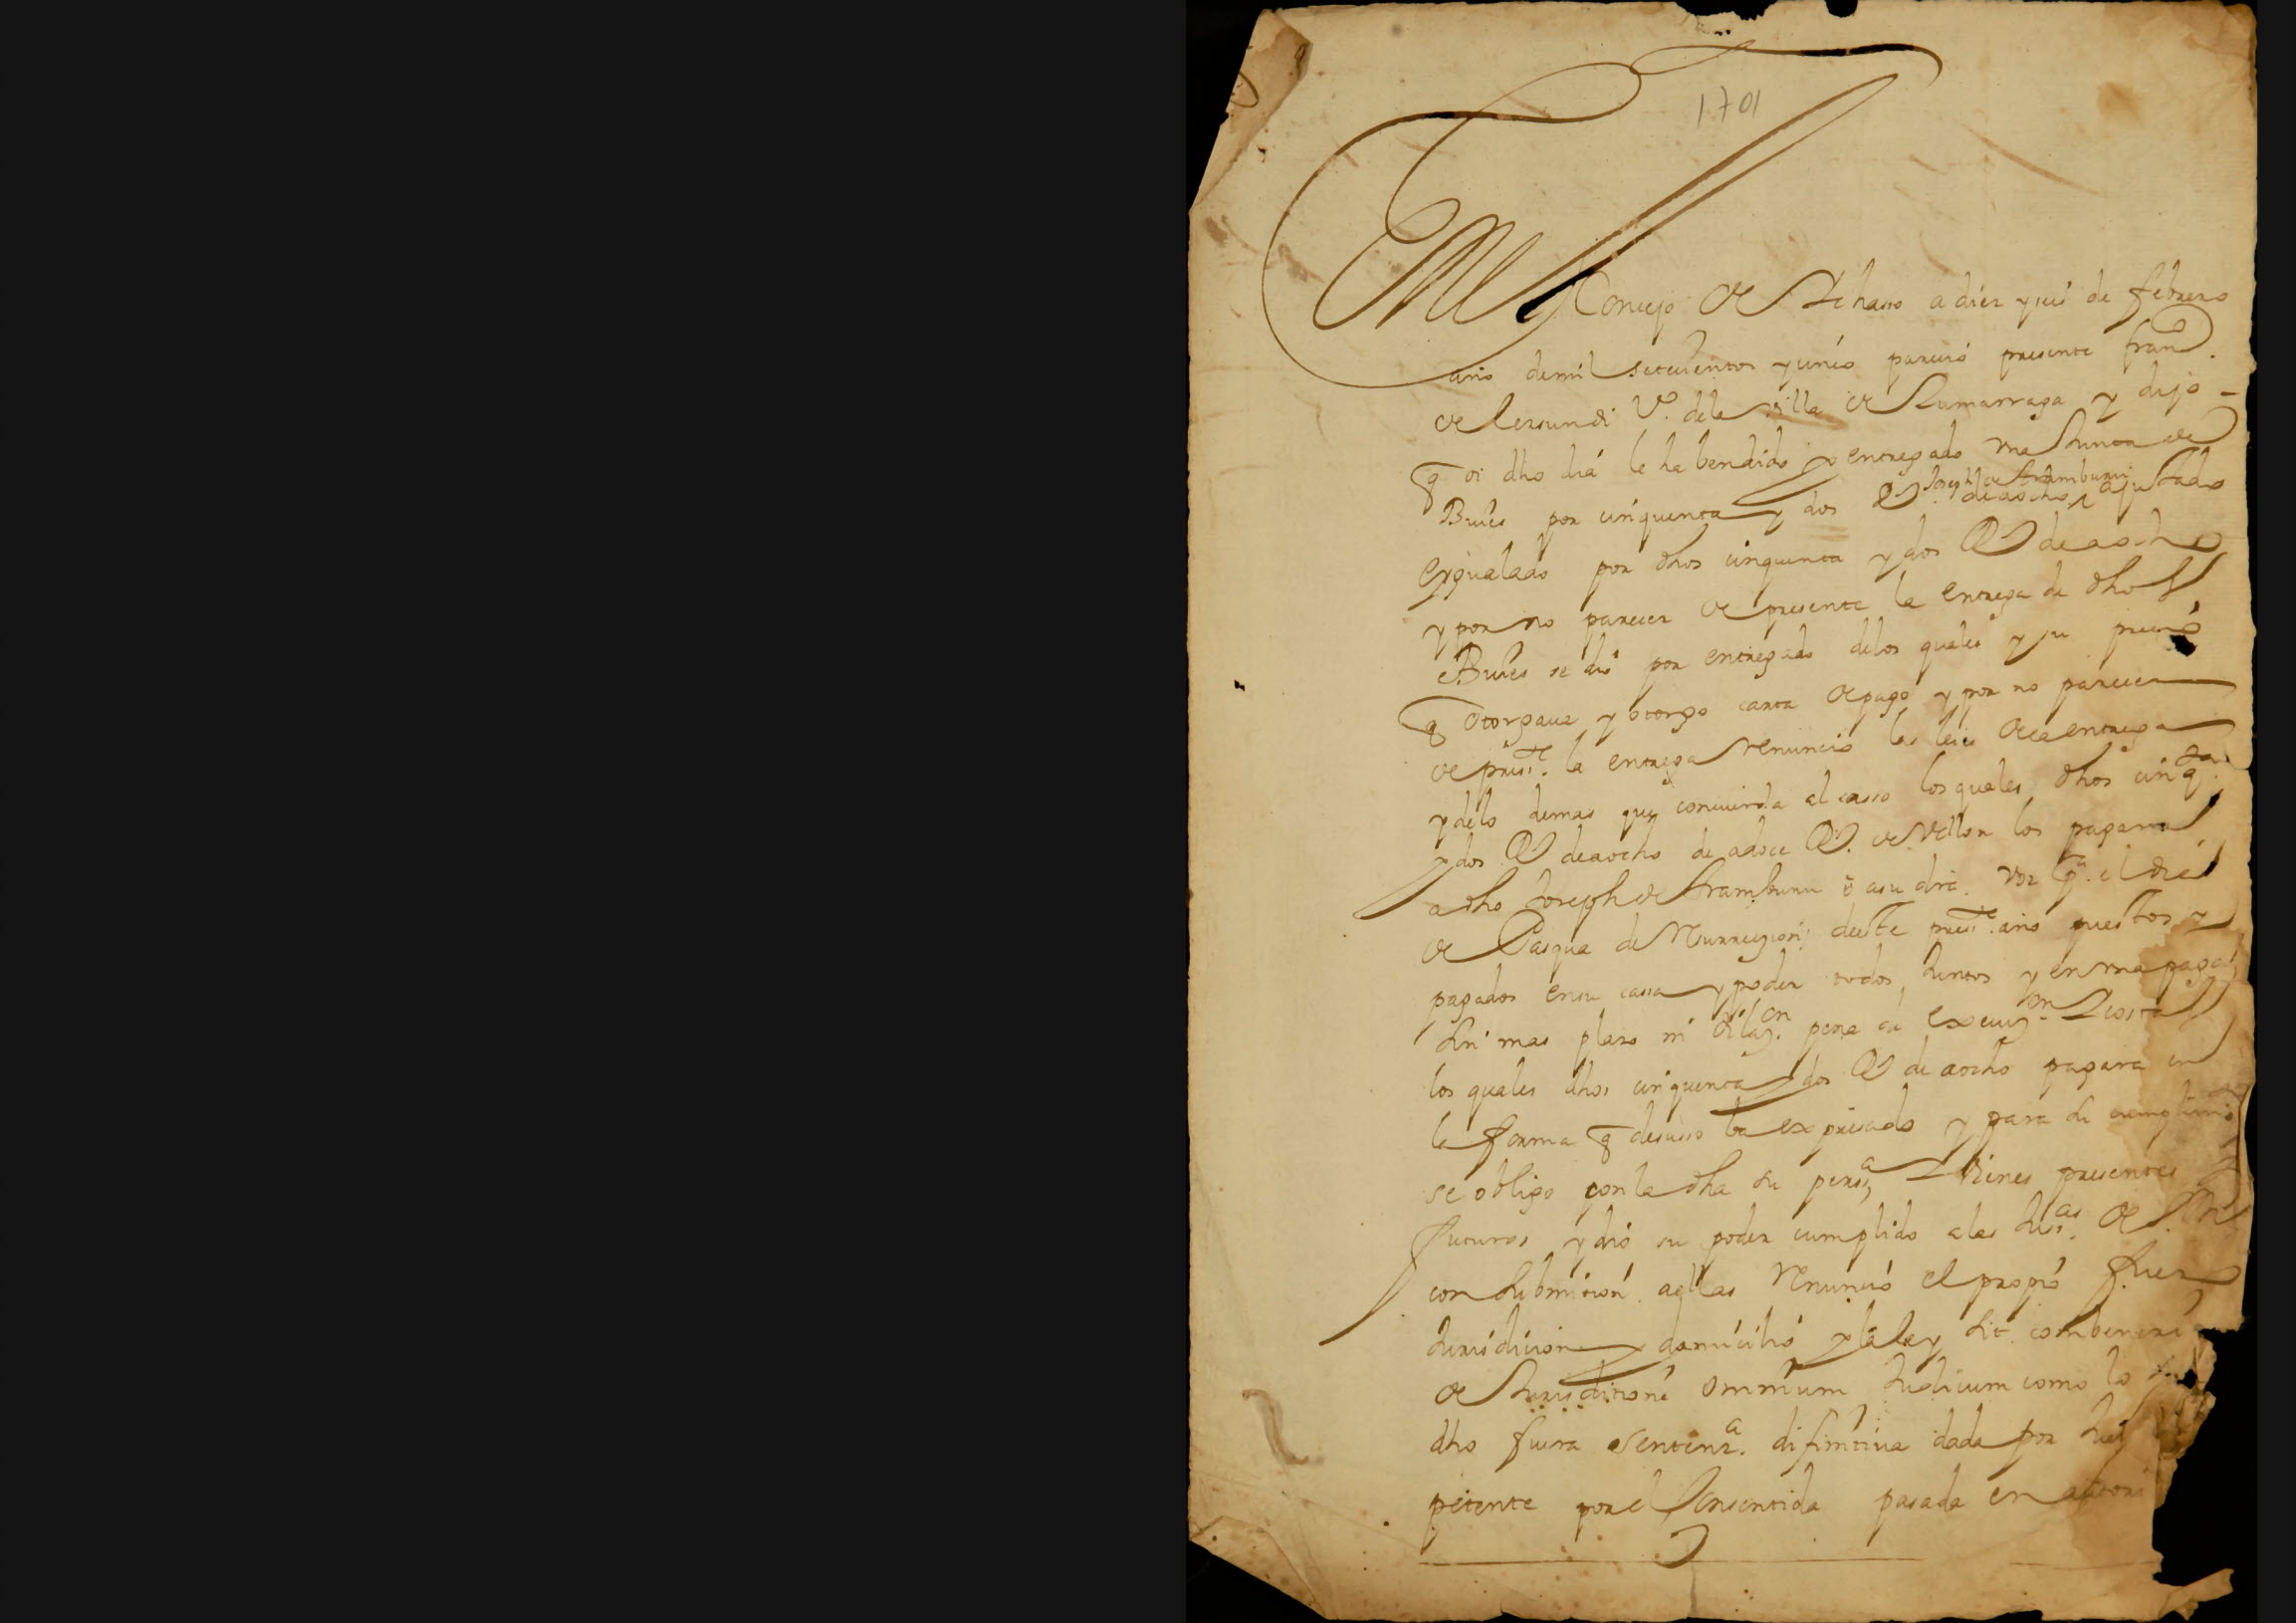 1701
En el Concejo de Ichaso a diez y seis de febrero
año de mil setecientos y unó pareció presente fran.co
de lersundi V.o de la villa de Zumarraga y dijo -
q oi dho diá le ha bendido y entregado una Junta de
Joseph de Aramburu
Bueies por cinquenta y dos de aocho ajustado
e ygualado por dhos cinquenta y dos de aocho
y por no parecer de presente la entrega de dhos
Bueies se dió por entregado de los quales y su preció
q otorgaua y otorgo carta de pago y por no parecer
de pres.te la entrega renunció las leies de la entrega
y de lo demas que conuenga al casso los quales dhos cinq.ta
y dos de aocho de adoce de Vellon los pagara
a dho Joseph de Aramburu o a su dra. voz p.a el diá
de Pasqua de Rurrezion deste pres.te año puestos y
pagados en su cassa y poder todos Juntos y en una paga
Sin mas plazo ni dilaz.on pena de execuz.on y costas
los quales dhos cinquenta y dos de aocho pagara en
la forma q desusso ba expresado y para su cumplimi.o
se obligo con la dha su perss.a y Vienes presentes
futuros y dió su poder cumplido a las Jus.as de
con Submision aellas Renunció el propió fuero
Jurisdicion y domicilió y la ley sit combenerit
de Jurisditione omnium Judicum como lo
dho fuera sentenz.a difinitiua dada por Juez
petente por el Consentida pasada en autori